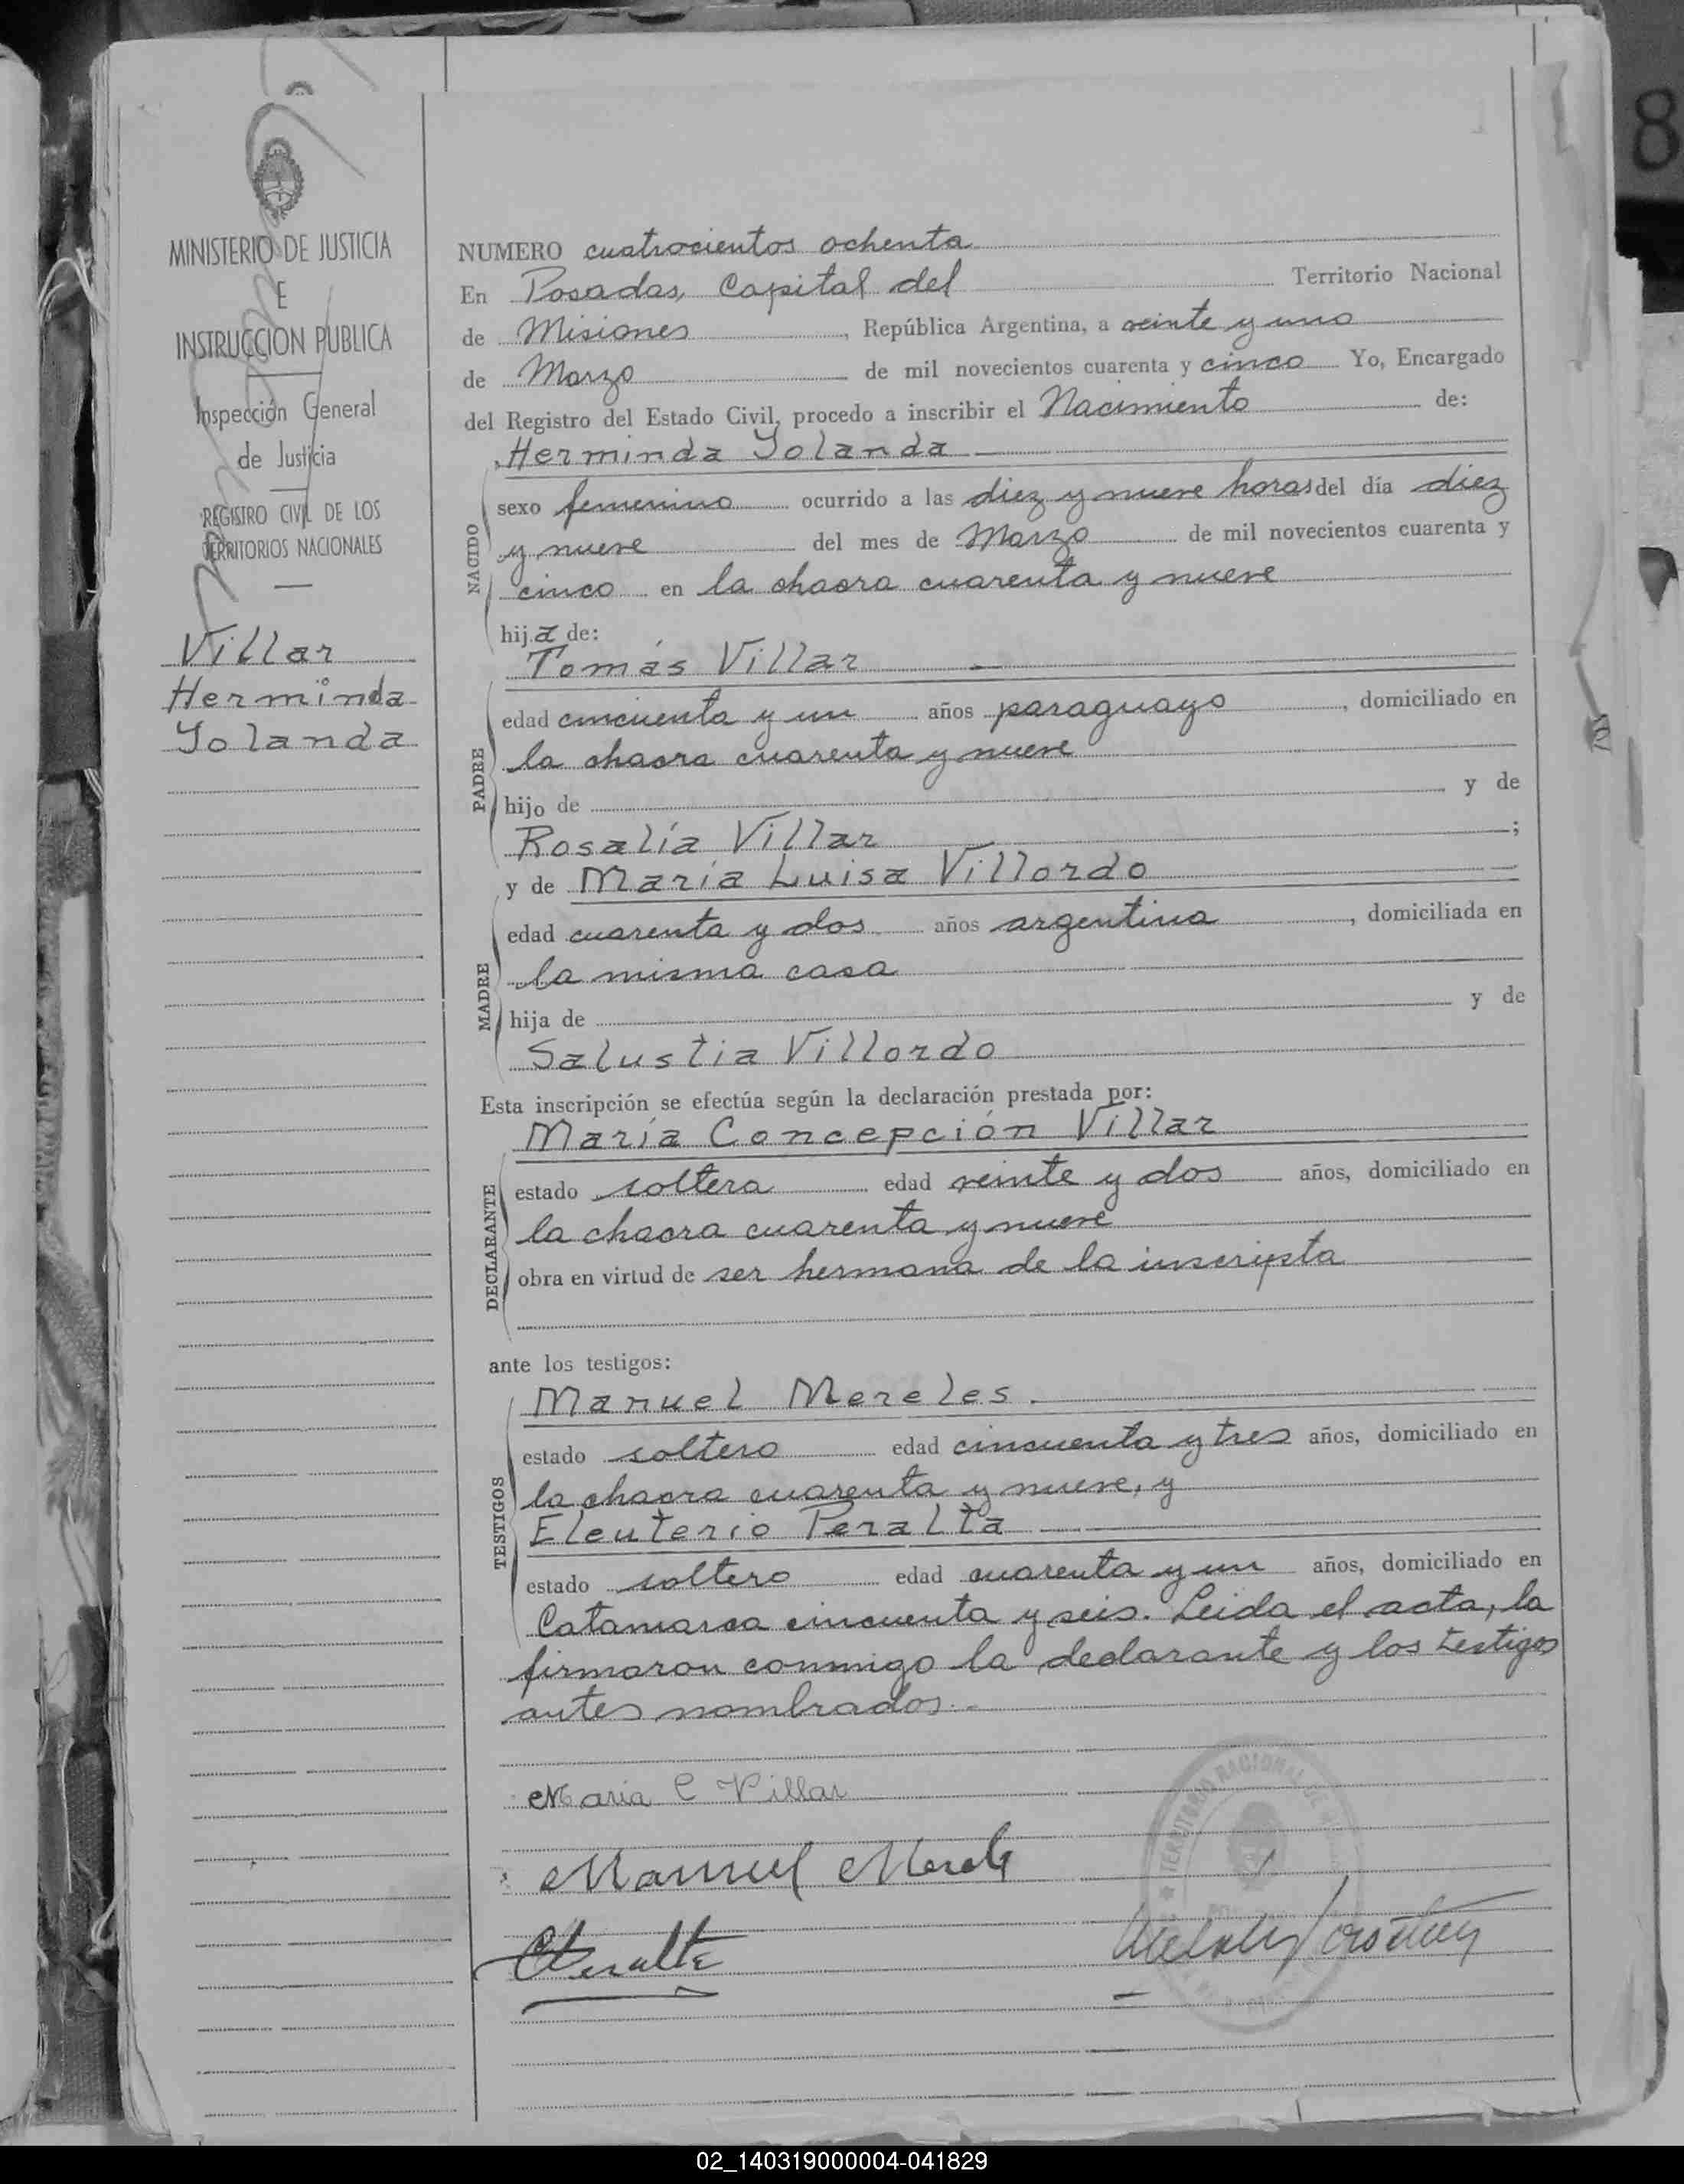 MINISTERIO DE JUSTICIA
E
INSTRUCCION PUBLICA
Inspección General
de Justicia
REGISTRO CIVIL DE LOS
TERRITORIOS NACIONALES
Villar
Herminda
Yolanda
8
NUMERO cuatrocientos ochenta
En Posadas, Capital del Territorio Nacional
de Misiones, República Argentina, a veinte y uno
de Marzo de mil novecientos cuarenta y cinco Yo, Encargado
del Registro del Estado Civil, procedo a inscribir el Nacimiento de:
Herminda Yolanda
NACIDO
sexo femenino ocurrido a las diez y nueve horas del día diez
y nueve del mes de Marzo de mil novecientos cuarenta y
cinco en la chacra cuarenta y nueve
hija de:
Tomás Villar
PADRE
edad cincuenta y un años paraguayo, domiciliado en
la chacra cuarenta y nueve
hijo de y de
Rosalía Villar;
y de María Luisa Villordo
MADRE
edad cuarenta y dos años argentina, domiciliada en
la misma casa
hija de y de
Salustia Villordo
Esta inscripción se efectúa según la declaración prestada por:
María Concepción Villar
DECLARANTE
estado soltera edad veinte y dos años, domiciliado en
la chacra cuarenta y nueve
obra en virtud de ser hermana de la inscripta
ante los testigos:
Manuel Mereles.
TESTIGOS
estado soltero edad cincuenta y tres años, domiciliado en
la chacra cuarenta y nueve, y
Eleuterio Peralta
estado soltero edad cuarenta y un años, domiciliado en
Catamarca cincuenta y seis. Leida el acta, la
firmaron conmigo la declarante y los testigos
antes nombrados.
Maria C Villar
Manuel Merele
EPeralta
TERRITORIO NACIONAL DE
02_140319000004-041829